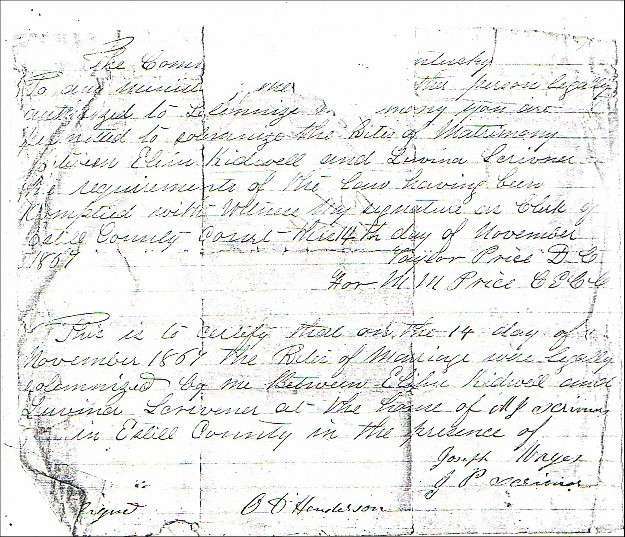 The Comm ntucky
To any minis other person legally
authorized to Solemnize mony you are
permitted to solemnize the Rites of Matrimony
between Elihu Kidwell and Luvina Scrivner
the requirements of the law having been
Complied with Witness My signature as Clerk of
Estill County Court this 14th day of November
1867 Taylor Price D C
For M M Price C E C C
This is to certify that on the 14 day of
November 1867 the Rites of Marriage was legally
solemnized by me Between Elihu Kidwell and
Luvina Scrivener at the home of M J Scrivner
in Estill County in the presence of
Joseph Wages
J P Scrivner
O D Henderson